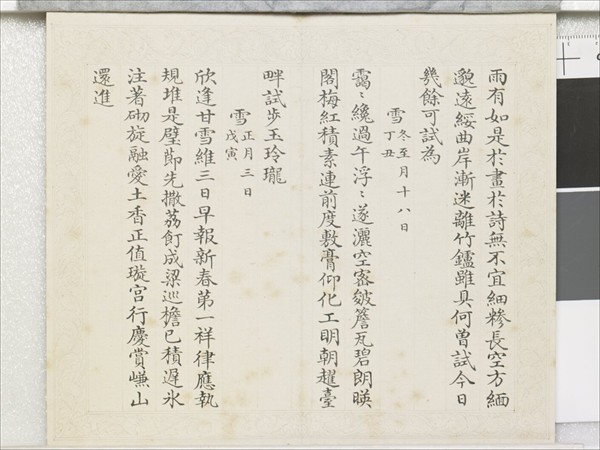 雨有如是於畫於詩無不宜細糝長空方緬
邈遠綏曲岸漸迷離竹鑪雖具何曾試今日
幾餘可試為
雪 冬至月十八日
丁丑
靄〻纔過午浮〻遂灑空密皴簷瓦碧朗暎
閣梅紅積素連前度敷膏仰化工明朝趯臺
畔試步玉玲瓏
雪 正月三日
戊寅
欣逢甘雪維三日早報新春第一祥律應執
規堆是璧節先撒荔飣成梁巡檐已積遲氷
注著砌旋融愛土香正值璇宮行慶賞巇山
還進